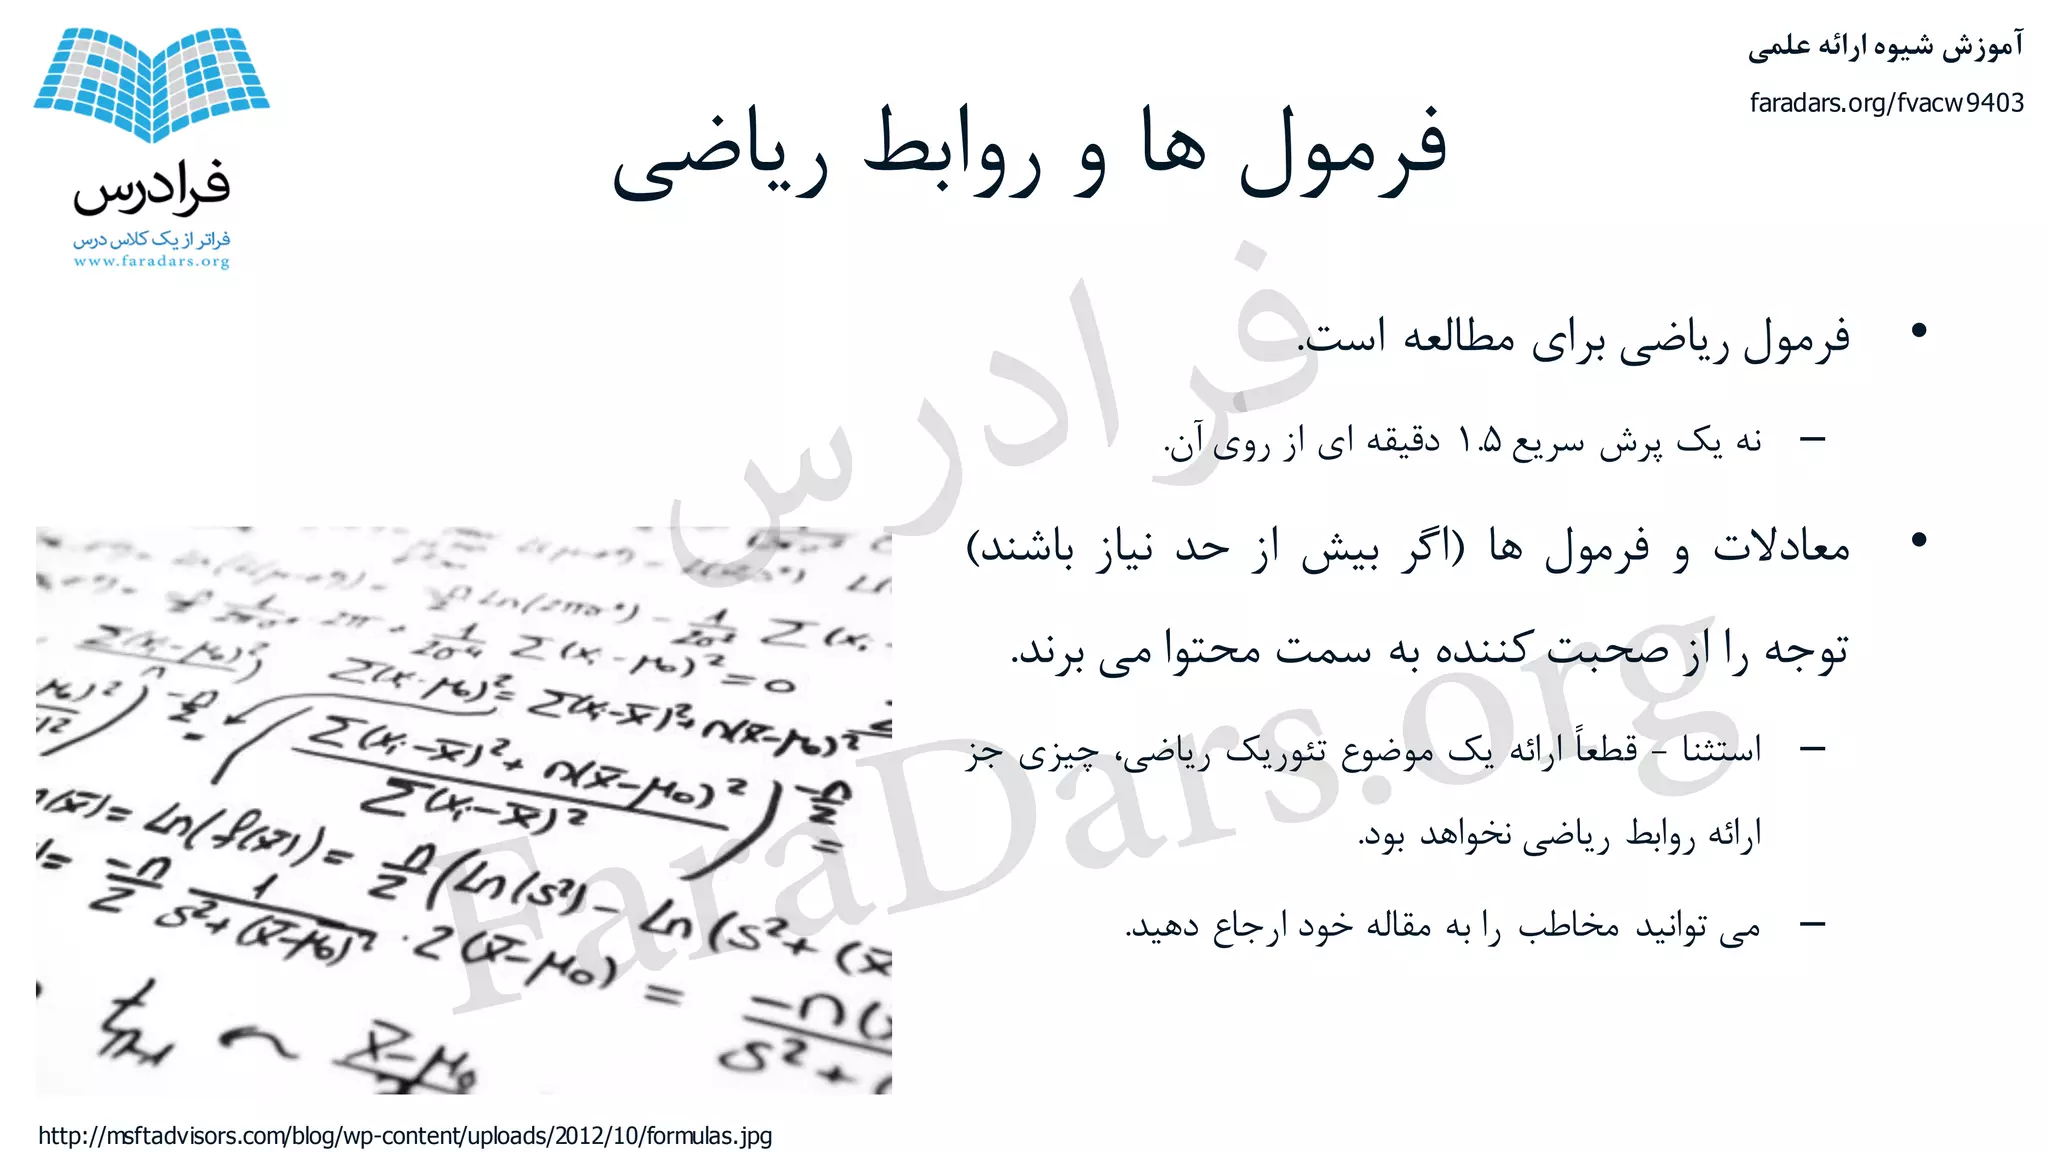 آموزش شیوه ارائه علمی
faradars.org/fvacw9403
فرادرس
فراتر از یک کلاس درس
www.faradars.org
فرمول ها و روابط ریاضی
• فرمول ریاضی برای مطالعه است.
– نه یک پرش سریع ۱.۵ دقیقه ای از روی آن.
• معادلات و فرمول ها (اگر بیش از حد نیاز باشند)
توجه را از صحبت کننده به سمت محتوا می برند.
– استثنا - قطعاً ارائه یک موضوع تئوریک ریاضی، چیزی جز
ارائه روابط ریاضی نخواهد بود.
– می توانید مخاطب را به مقاله خود ارجاع دهید.
فرادرس
FaraDars.org
http://msftadvisors.com/blog/wp-content/uploads/2012/10/formulas.jpg